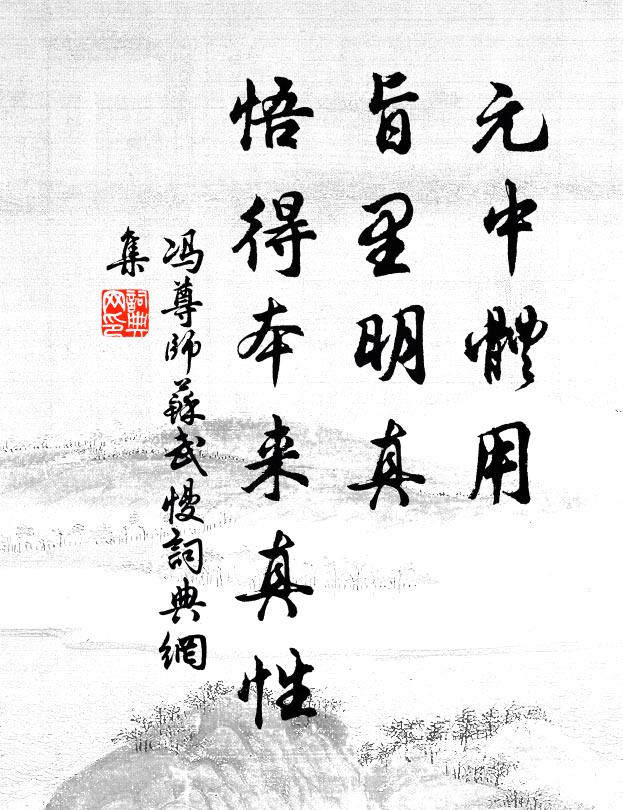 元中體用
旨里明真
悟得本来真性
冯尊師蘇武慢詞典網
集
詞典
网印